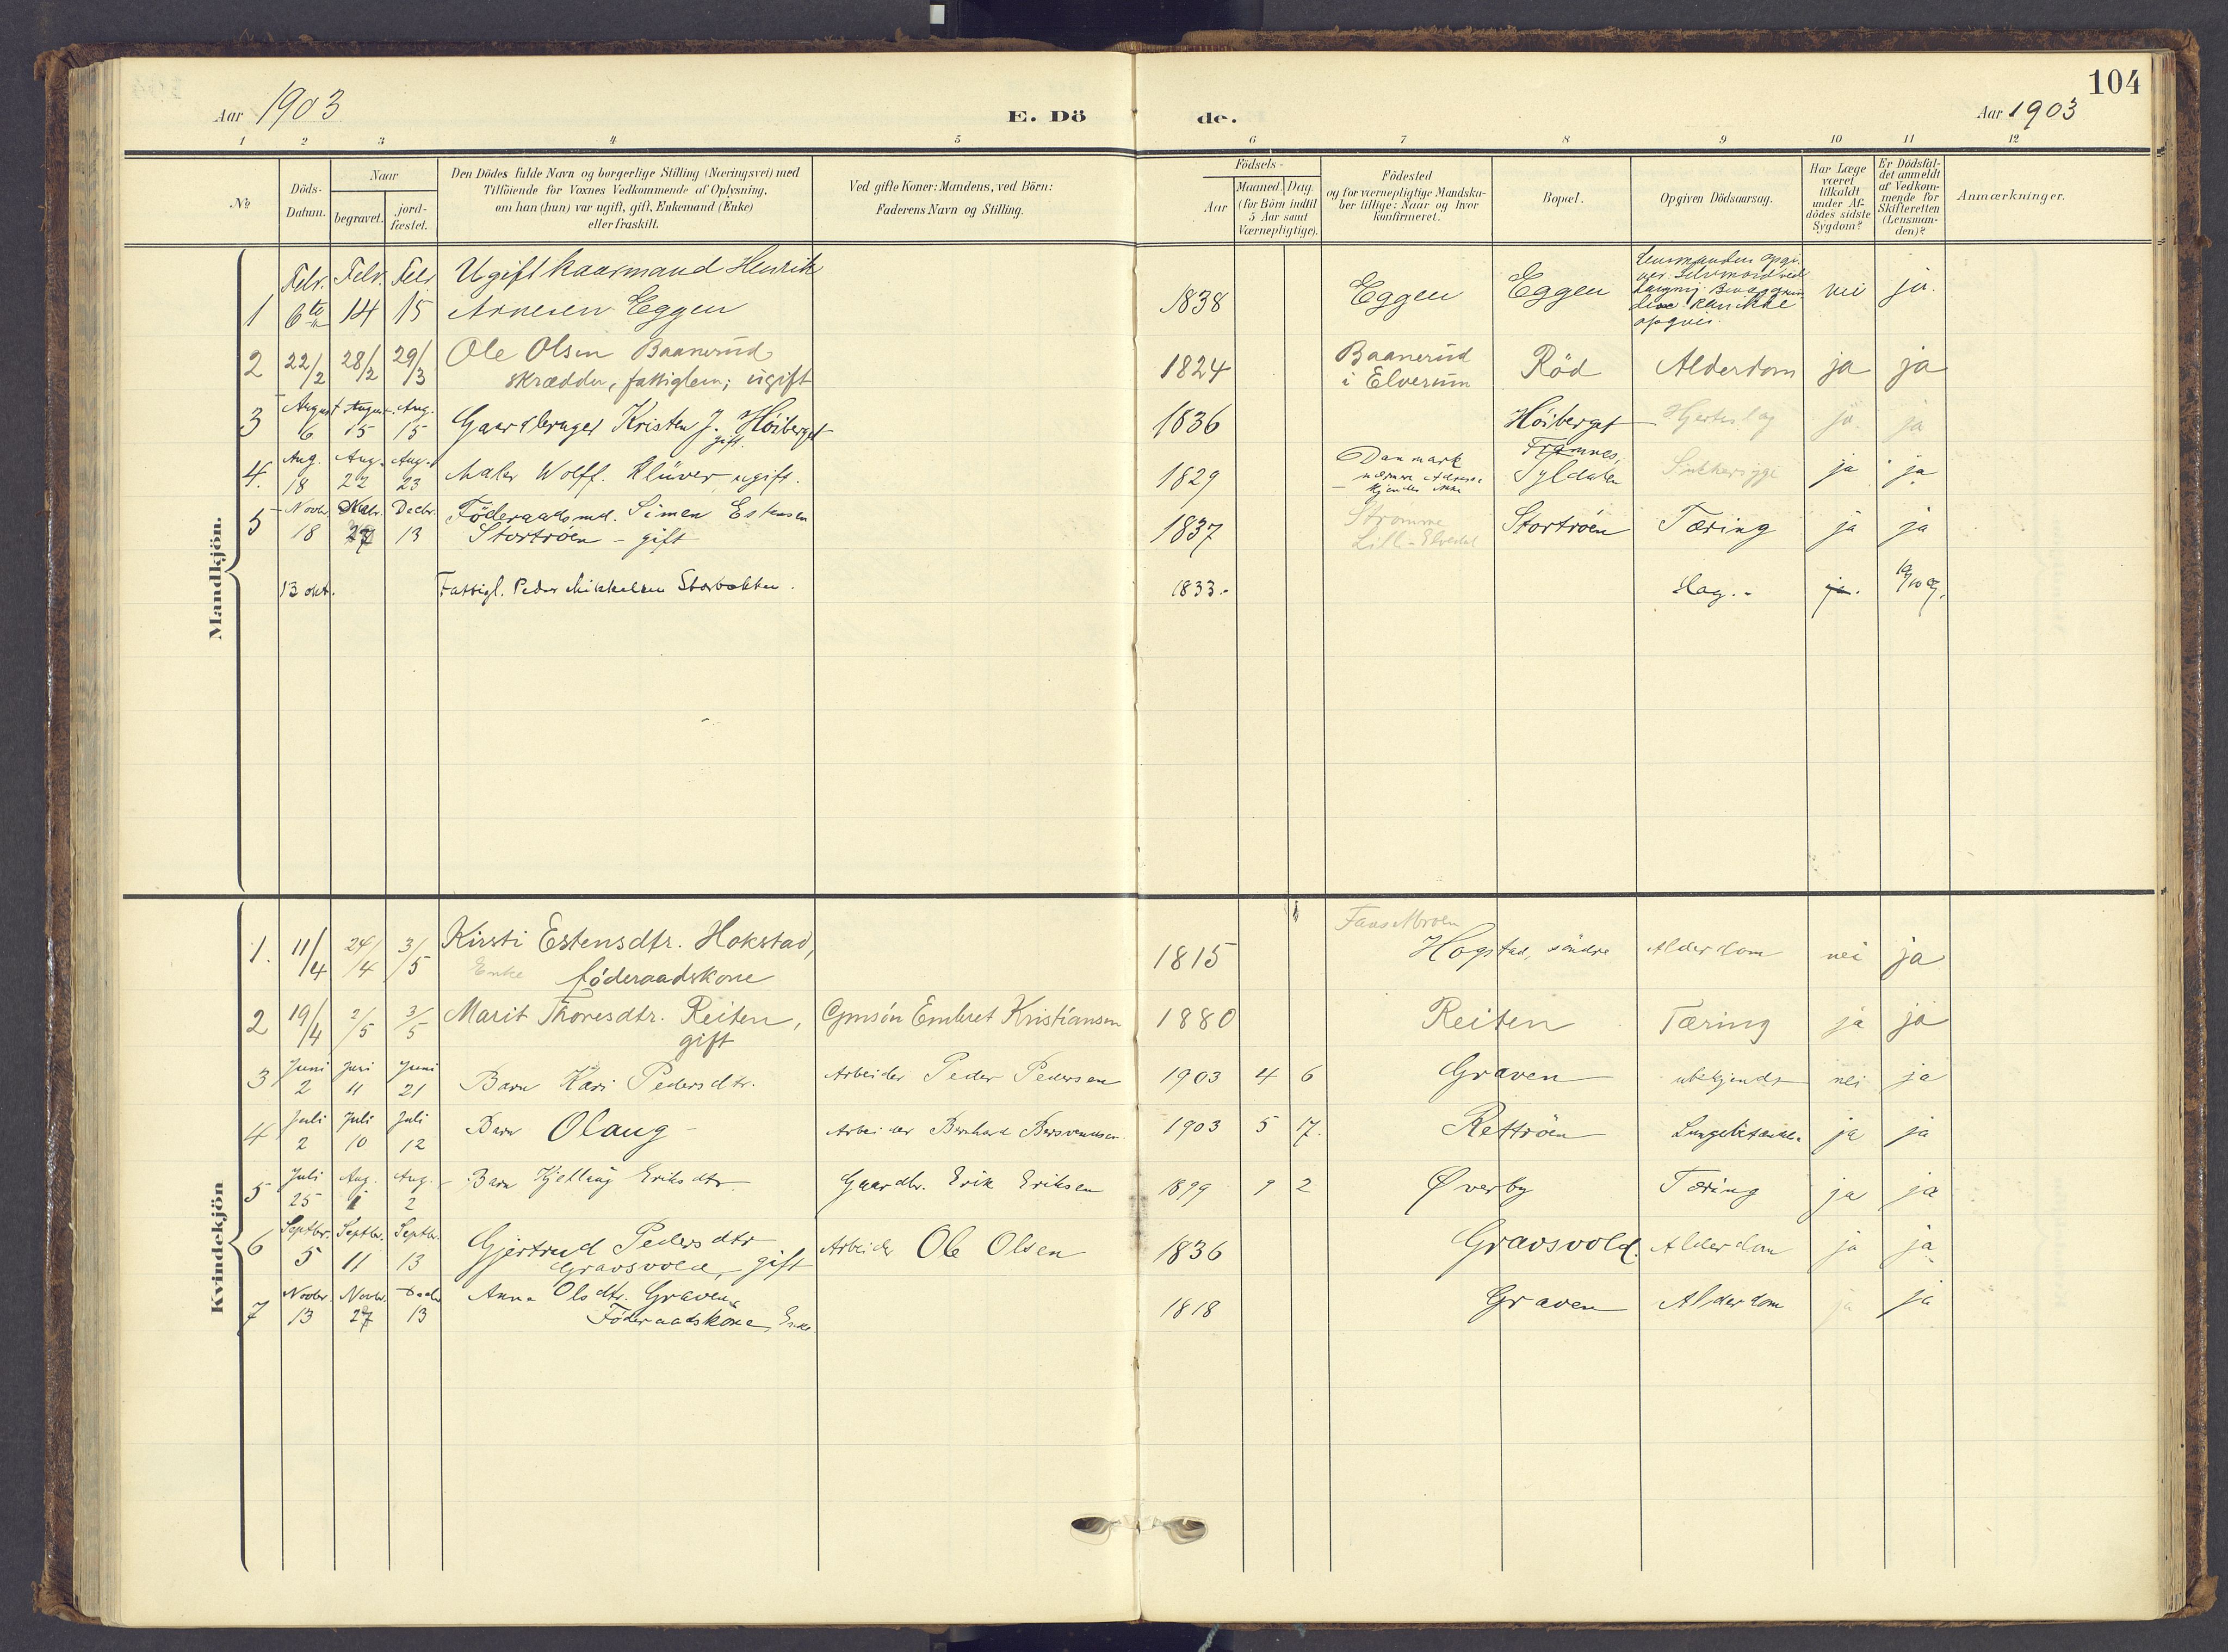 104
Aar 1903
E. Dö
de.
Aar 1903
1 2 3 4 5 6 7 8 9 10 11 12
№
Döds-
Datum.
Naar
begravet.
jord-
fæstet.
Den Dödes fulde Navn og borgerlige Stilling (Næringsvei) med
Tilföiende for Voxnes Vedkommende af Oplysning,
om han (hun) var ugift, gift, Enkemand (Enke)
eller fraskilt.
Ved gifte Koner: Mandens, ved Börn:
Faderens Navn og Stilling.
Födsels-
Aar
Maaned. Dag.
(for Börn indtil
5 Aar samt
Værnepligtige).
Födested
og for værnepligtige Mandska-
ber tillige: Naar og hvor
konfirmeret.
Bopæl.
Opgiven Dödsaarsag.
Har Læge
været
tilkaldt
under Af-
dödes sidste
Sygdom?
Er Dödsfal-
det anmeldt
af Vedkom-
mende for
Skifteretten
(Lensman-
den)?
Anmærkninger.
Mandkjön.
Febr. Febr. Febr. Ugift kaarmand Henrik
1 6te 14 15 Arnesen Eggen 1838 Eggen Eggen nei ja.
2 22/2 28/2 29/3 Ole Olsen Baanerud 1824 Baanerud Röd Alderdom ja ja
skrædder, fattiglem; ugift i Elverum
August August Aug.
3 6 15 15 Gaardbruger Kristen J. Höiberget 1836 Höiberget Hjerteslag ja ja
gift.
Aug. Aug. Aug. Danmark Framnes,
4. 18 22 23 Maler Wolff. Klüver ugift. 1829 nærmere Adresse Syldalen Sukkersyge ja ja
kjendes ikke
Novbr. Decbr. Föderaadsmd. Simen Estensen Strømme
5 18 27 13 Stortröen - gift 1837 Lill-Elvedal Stortröen Tæring ja ja
13 okt. Fattigl. Peder Mikkelsen Storbakken. 1833.- Slag.- ja.
Kvindekjön
1. 11/4 24/4 3/5 Kirsti Estensdtr. Hokstad, 1815 Hogstad, söndre Alderdom nei ja
Enke föderaadskone
2 19/4 2/5 3/5 Marit Thoresdtr. Reiten, Gmsön Embret Kristiansen 1880 Reiten Tæring ja ja
gift
Juni Juni Juni
3 2 11 21 Barn Kari Pedersdtr. Arbeider Peder Pedersen 1903 4 6 Graven ubekjendt nei ja
Juli Juli Juli
4 2 10 12 Barn Olaug - Arbeider Bernhard Bersvendsen 1903 5 17. Rettröen Lungebetændelse ja ja
Juli Aug. Aug.
5 25 1 2 Barn Kjellaug Eriksdtr. Gaardbr. Erik Eriksen 1899 9 2 Øverby Tæring ja ja
Septbr. Septbr. Septbr.
6 5 11 13 Gjertrud Pedersdtr Arbeider Ole Olsen 1836 Gravsvold. Alderdom ja ja
Gravsvold, gift
Novbr. Novbr. Decbr
7 13 27 13 Anna Olsdtr. Graven 1818 Graven Alderdom ja ja
Föderaadskone, Enke.